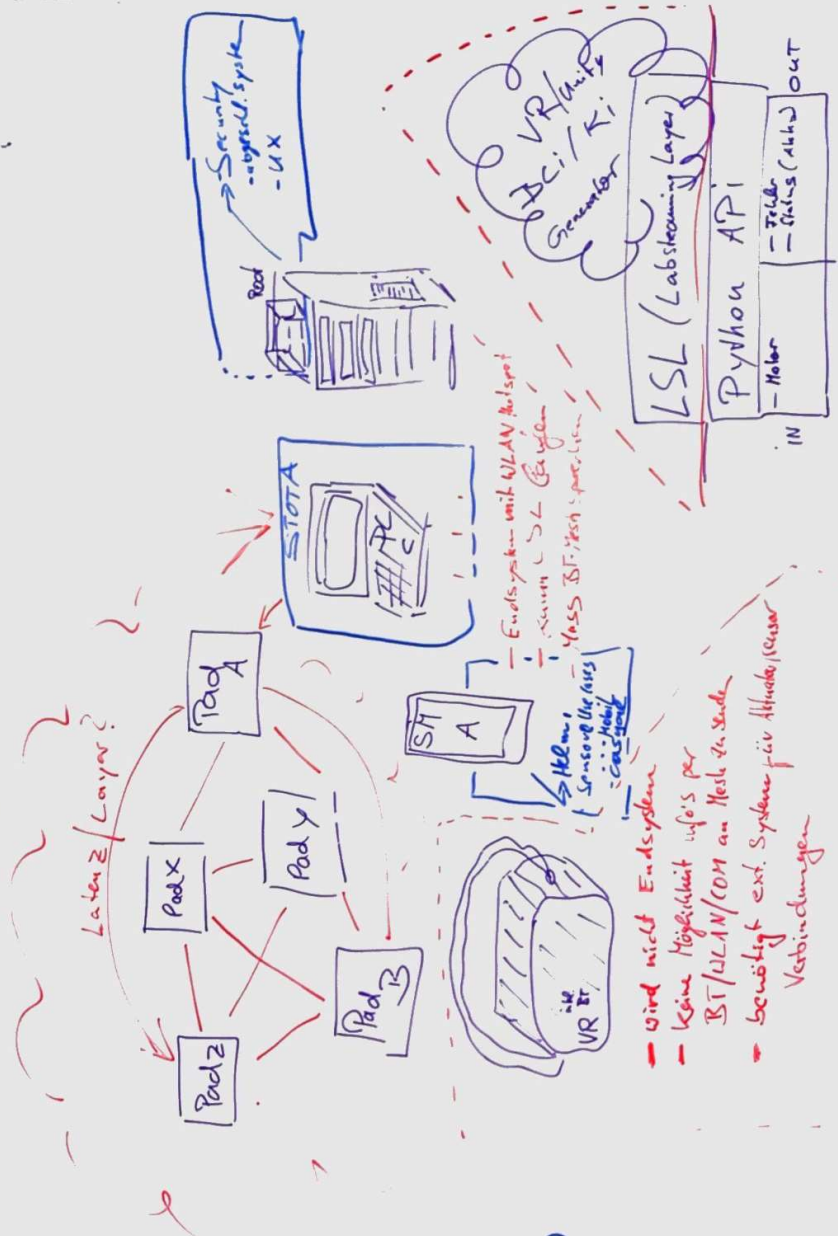 Latenz / Layer?
Pad Z
Pad X
Pad A
Pad Y
Pad B
STOTA
PC
Root
→ Security
- abgeschl. System
- UX
SM
A
→ Helm,
Sensorik
... Mobil
- Endsystem mit WLAN Hotspot
- kann LSL laufen
- Mass BT-Mesh sprechen
VR
BT
- wird nicht Endsystem
- keine Möglichkeit info's per
BT/WLAN/COM an Mesh zu senden
- benötigt ext. System für Aktuator/sensor
Verbindungen
VR/Unity
BCi / Ki
Generator
LSL (Labstreaming Layer)
Python API
- Motor
- Fehler
- Status (Akku)
IN
OUT